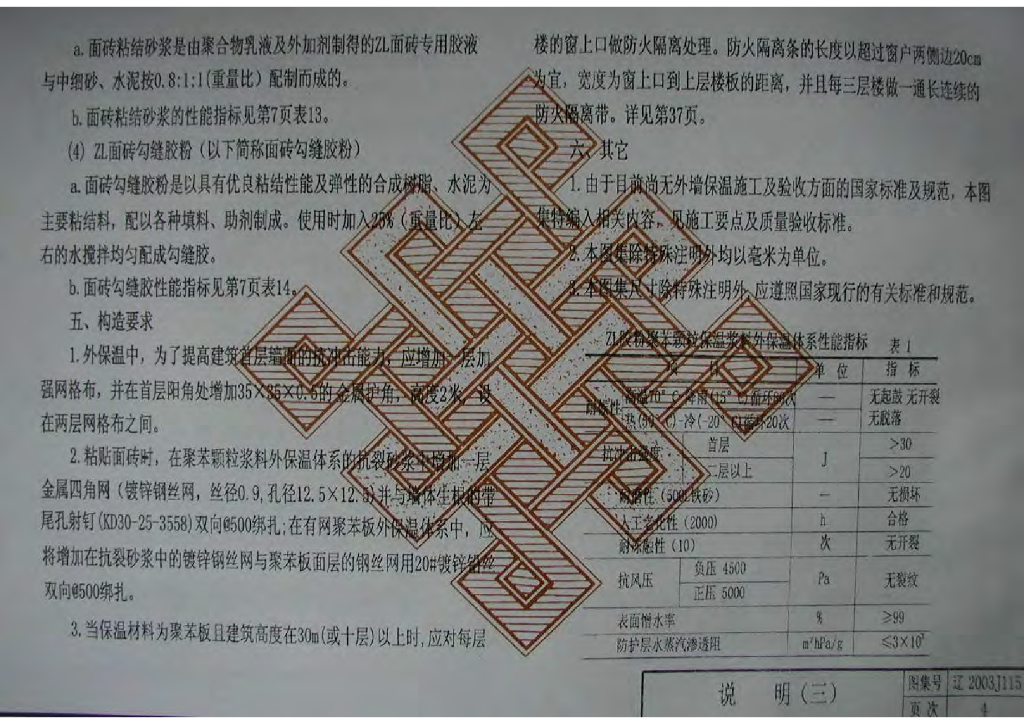 a.面砖粘结砂浆是由聚合物乳液及外加剂制得的ZL面砖专用胶液
与中细砂、水泥按0.8:1:1(重量比)配制而成的。
b.面砖粘结砂浆的性能指标见第7页表13。
(4) ZL面砖勾缝胶粉(以下简称面砖勾缝胶粉)
a.面砖勾缝胶粉是以具有优良粘结性能及弹性的合成树脂、水泥为
主要粘结料，配以各种填料、助剂制成。使用时加入25%(重量比)左
右的水搅拌均匀配成勾缝胶。
b.面砖勾缝胶性能指标见第7页表14。
五、构造要求
1.外保温中，为了提高建筑首层墙面的抗冲击能力，应增加一层加
强网格布，并在首层阳角处增加35×35×0.5的金属护角，高度2米，设
在两层网格布之间。
2.粘贴面砖时，在聚苯颗粒浆料外保温体系的抗裂砂浆中增加一层
金属四角网(镀锌钢丝网，丝径0.9,孔径12.5×12.5)并与墙体生根的带
尾孔射钉(KD30-25-3558)双向@500绑扎;在有网聚苯板外保温体系中，应
将增加在抗裂砂浆中的镀锌钢丝网与聚苯板面层的钢丝网用20#镀锌铅丝
双向@500绑扎。
3.当保温材料为聚苯板且建筑高度在30m(或十层)以上时,应对每层
楼的窗上口做防火隔离处理。防火隔离条的长度以超过窗户两侧边20cm
为宜，宽度为窗上口到上层楼板的距离，并且每三层楼做一通长连续的
防火隔离带。详见第37页。
六、其它
1.由于目前尚无外墙保温施工及验收方面的国家标准及规范，本图
集特编入相关内容，见施工要点及质量验收标准。
2.本图集除特殊注明外均以毫米为单位。
3.本图集尺寸除特殊注明外,应遵照国家现行的有关标准和规范。
ZL胶粉聚苯颗粒保温浆料外保温体系性能指标 表1
项 目 单 位 指 标
耐候性 高温70° 降雨(15° C)循环80次 — 无起鼓 无开裂
热(50° C)-冷(-20° C)循环20次 — 无脱落
抗冲击强度 首层 J >30
二层以上 >20
耐磨性(500L铁砂) — 无损坏
人工老化性(2000) h 合格
耐冻融性(10) 次 无开裂
抗风压 负压 4500 Pa 无裂纹
正压 5000
表面憎水率 % ≥99
防护层水蒸汽渗透阻 m²hPa/g ≤3×10³
说 明(三) 图集号 辽 2003J115
页 次 4